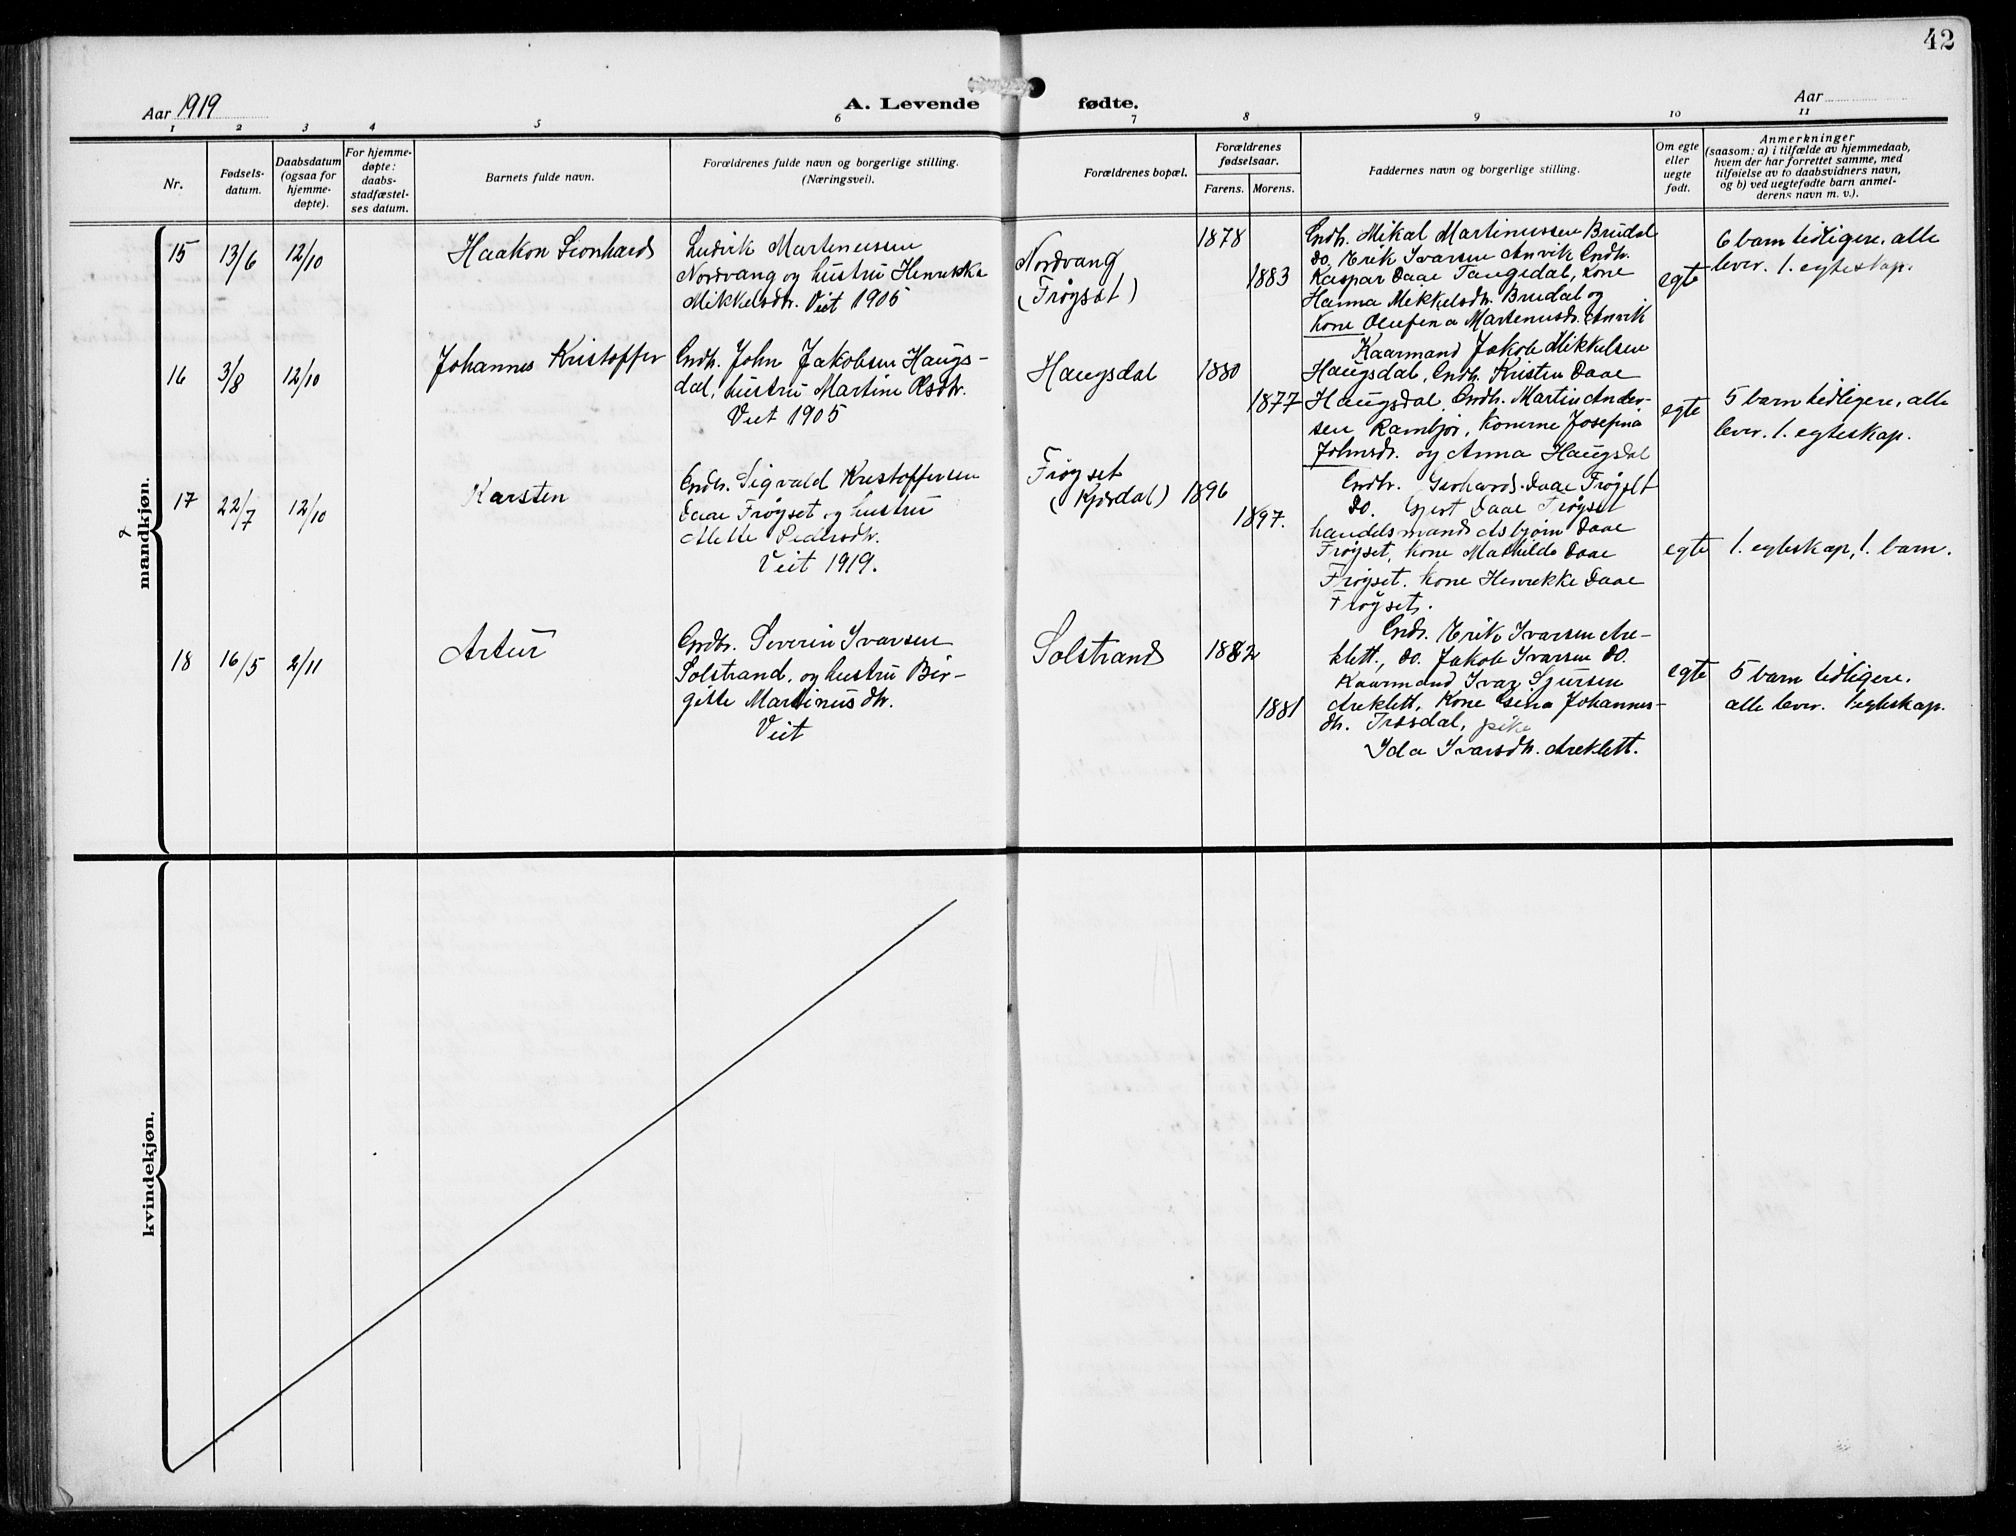 42
Aar 1919
A. Levende fødte.
Aar
1 2 3 4 5 6 7 8 9 10 11
Nr.
Fødsels-
datum.
Daabsdatum
(ogsaa for
hjemme-
døpte).
For hjemme-
døpte:
daabs-
stadfæstel-
ses datum.
Barnets fulde navn.
Forældrenes fulde navn og borgerlige stilling.
(Næringsvei).
Forældrenes bopæl.
Forældrenes
fødselsaar.
Farens. Morens.
Faddernes navn og borgerlige stilling.
Om egte
eller
uegte
født.
Anmerkninger
(saasom: a) i tilfælde av hjemmedaab,
hvem der har forrettet samme, med
tilføielse av to daabsvidners navn,
og b) ved uegtefødte barn anmel-
derens navn m. v.).
mandkjøn.
15 13/6 12/10
Haakon Leonhard
Ludvik Martinussen
Nordvang og hustru Henrikka
Mikkelsdtr. Veit 1905
Nordvang
(Frøyset)
1878
1883
Gndbr. Mikal Martinussen Brudal
do. Erik Ivarsen Anvik Gndbr.
Kaspar Daae Tangedal, Kone
Hanna Mikkelsdtr. Brudal og
Kone Olufina Martinusdtr. Anvik
egte
6 barn tidligere, alle
lever. 1. egteskap.
16 3/8 12/10
Johannes Kristoffer
Gndbr. John Jakobsen Haugs-
dal, hustru Martine Rsdtr.
Veit 1905
Haugsdal
1880
1877
Kaarmand Jakob Mikkelsen
Haugsdal, Gndbr. Kristen Daae
Haugsdal, Gndbr. Martin Ander-
sen Rambjør, Konerne Josefina
Johnsdtr. og Anna Haugsdal
egte
5 barn tidligere, alle
lever. 1. egteskap.
17 22/7 12/10
Karsten
Gndbr. Sigvald Kristoffersen
Daae Frøyset og hustru
Mette Pedersdtr.
Veit 1919.
Frøyset
(Kjørdal)
1896
1897.
Gndbr. Gerhard Daae Frøyset
do. Gjert Daae Frøyset
handelsmand Asbjørn Daae
Frøyset, Kone Mathilde Daae
Frøyset. Kone Henrikke Daae
Frøyset.
egte
1. egteskap, 1. barn.
18 16/5 2/11
Artur
Gndbr. Severin Ivarsen
Solstrand, og hustru Bir-
gitte Martinusdtr.
Veit
Solstrand
1882
1881
Gndbr. Erik Ivarsen Are-
klett., do. Jakob Ivarsen do.
Kaarmand Ivar Sjursen
Areklett, Kone Gina Johannes-
dtr. Trosdal, pike
Ida Ivarsdtr. Areklett.
egte
5 barn tidligere.
alle lever. 1 egteskap.
kvindekjøn.